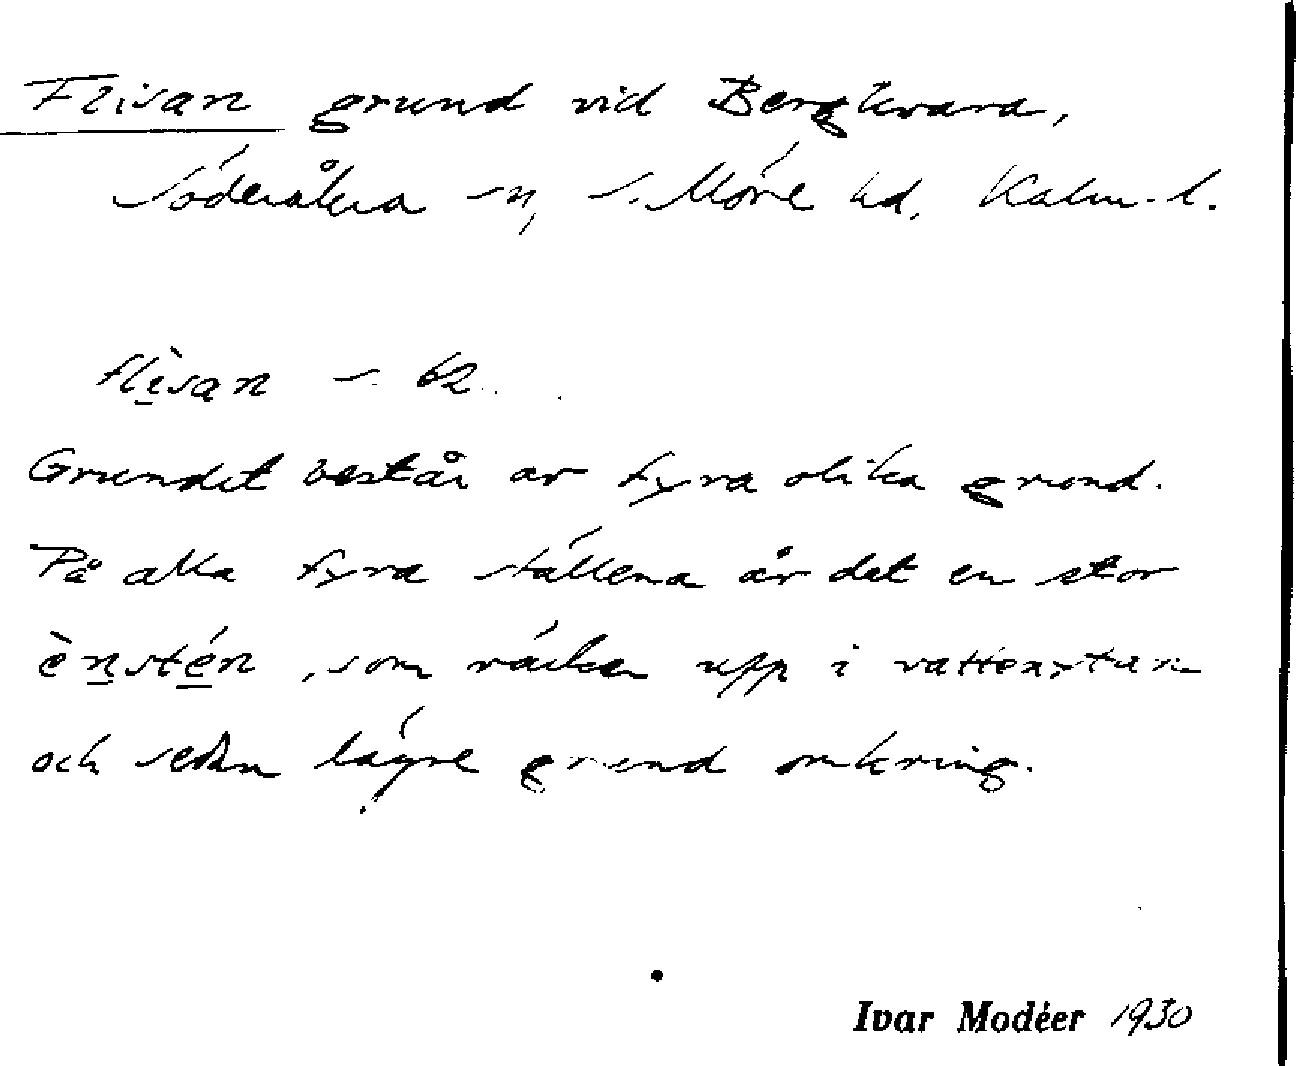 Flisan grund vid Bergkvara,
Söderåkra sn, S. Möre hd, Kalm. l.
flìsan s. 62.
Grundet består av fyra olika grund.
På alla fyra ställena är det en stor
ènstén, som räcker upp i vattenytan
och sedan lägre grund omkring.
Ivar Modéer 1930